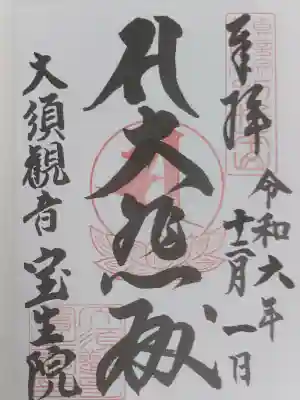 奉拝
令和六年
十二月一日
大悲殿
大須観音
宝生院